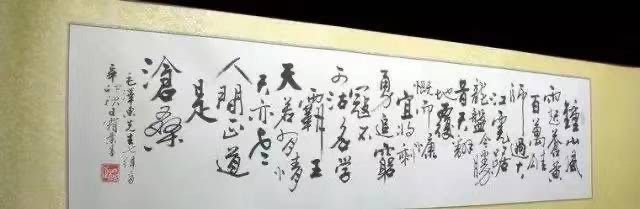 鐘山風
雨起蒼黄
百萬雄
師過大
江虎踞
龍盤今勝
昔天翻
地覆
慨而慷
宜將剩
勇追窮
寇不
可沽名學
霸王
天若有情
天亦老
人間正道
是
滄桑
毛澤東先生七律
辛卯